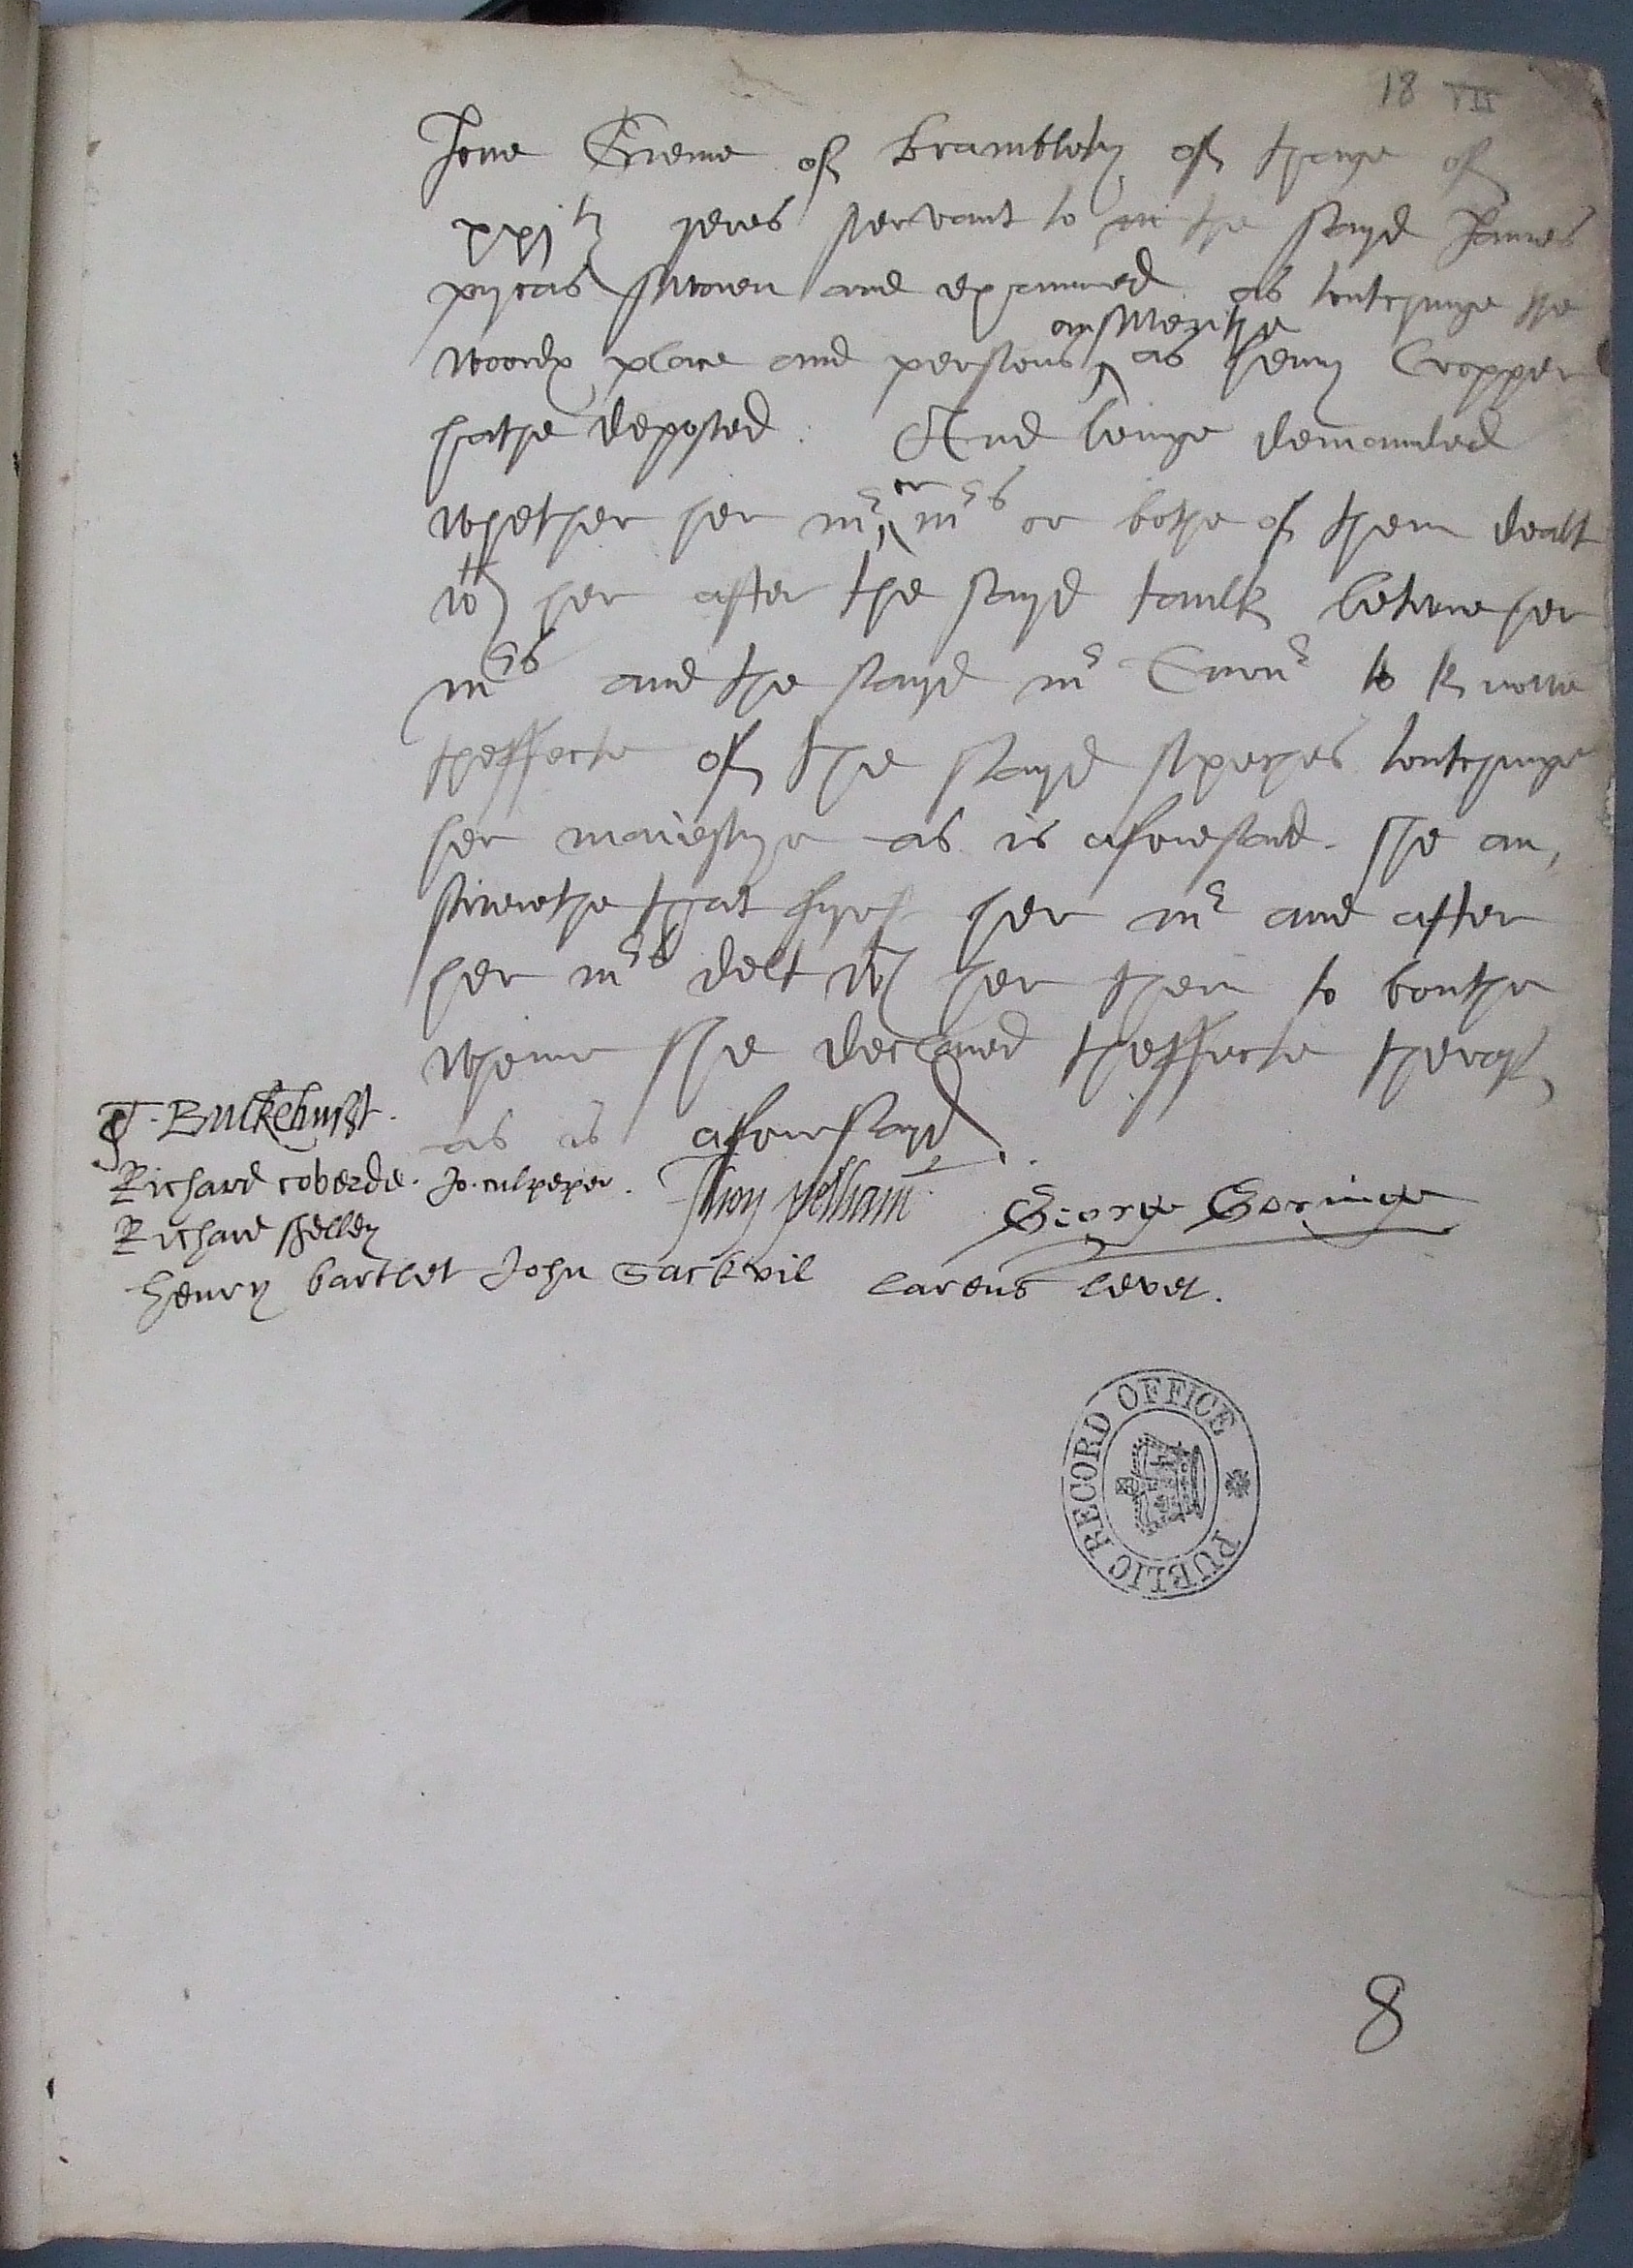 18 VII
Jone Greme of Bramblety of thage of
xxjty yeres servant to m the sayd James
pycas sworen and examined as towtchinge the
woordx place and persons ^ answerithe as henry Cropper
hathe deposed. And beinge demaunded
whether her mr ^ or mrs or bothe of them dealt
wth her after the sayd taulk betwne her
mrs and the sayd mr Emerr to knowe
theffecte of the sayd speches towtchinge
her maiestye as is aforesaid. She an,
swerethe that fyrst her mr and after
her mrs delt wth her then to bouthe
whome she declared theffecte therof
as is aforesayd.
T. Buckehurst.
Richard coverde. Jo. culpeper. pelham George Goringe
Richard shelley
henry bartlet John Sackvil larens levet.
PUBLIC RECORD OFFICE
8